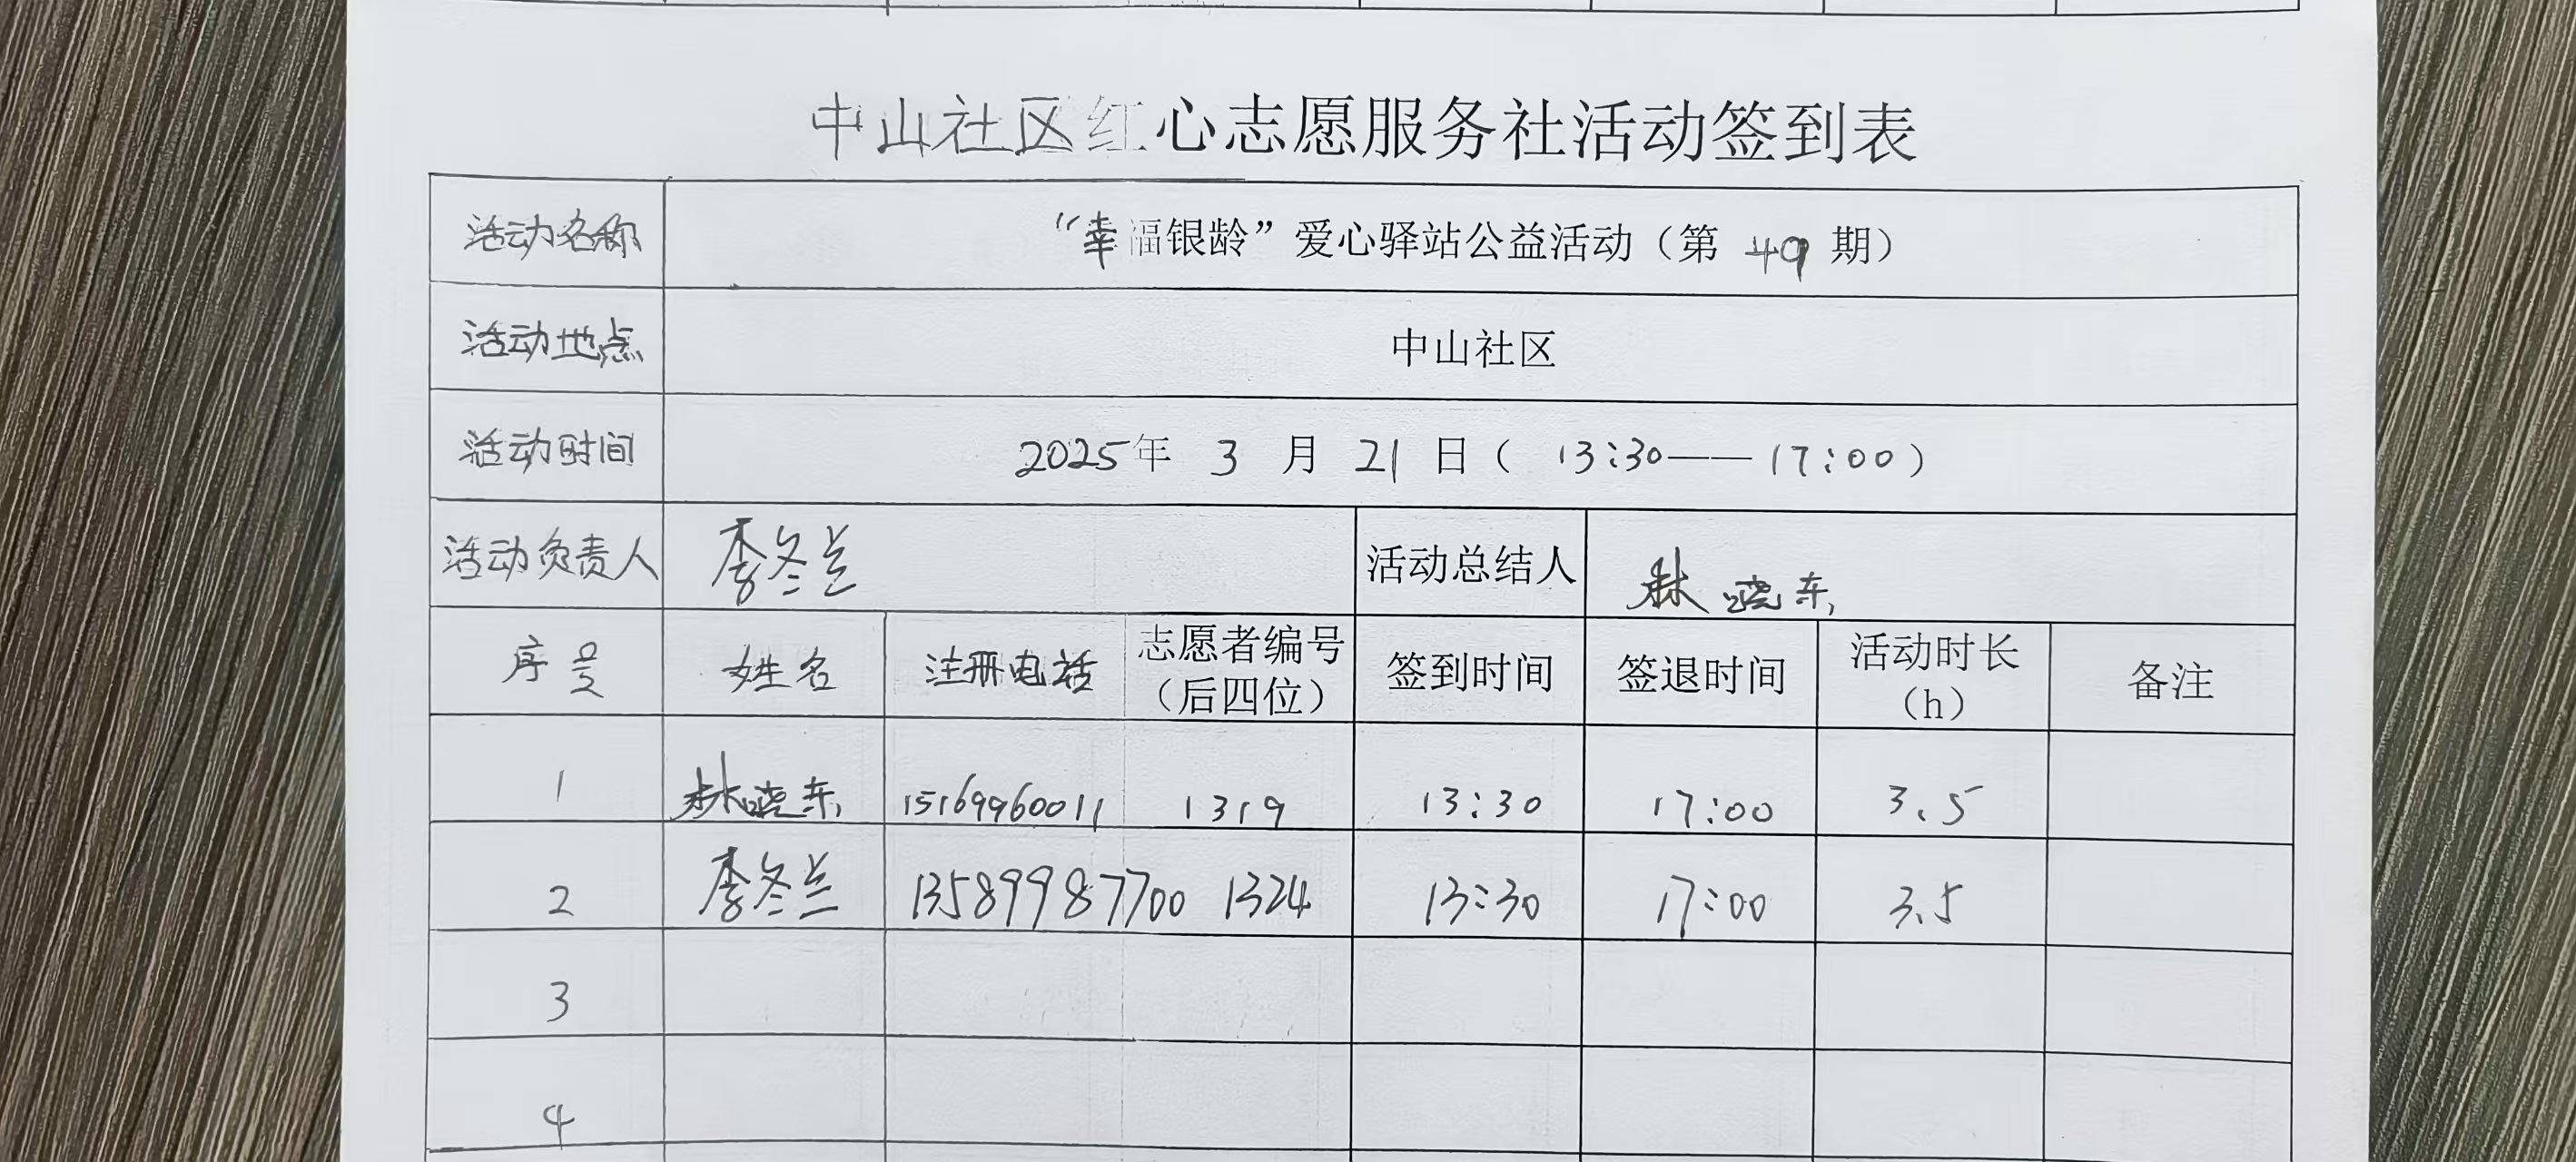 中山社区红心志愿服务社活动签到表
活动名称 “幸福银龄”爱心驿站公益活动（第 49 期）
活动地点 中山社区
活动时间 2025年 3 月 21 日（ 13:30——17:00）
活动负责人 李冬兰 活动总结人 林晓东
序号 姓名 注册电话 志愿者编号（后四位） 签到时间 签退时间 活动时长（h） 备注
1 林晓东 15169960011 1319 13:30 17:00 3.5
2 李冬兰 13589987700 1324 13:30 17:00 3.5
3
4